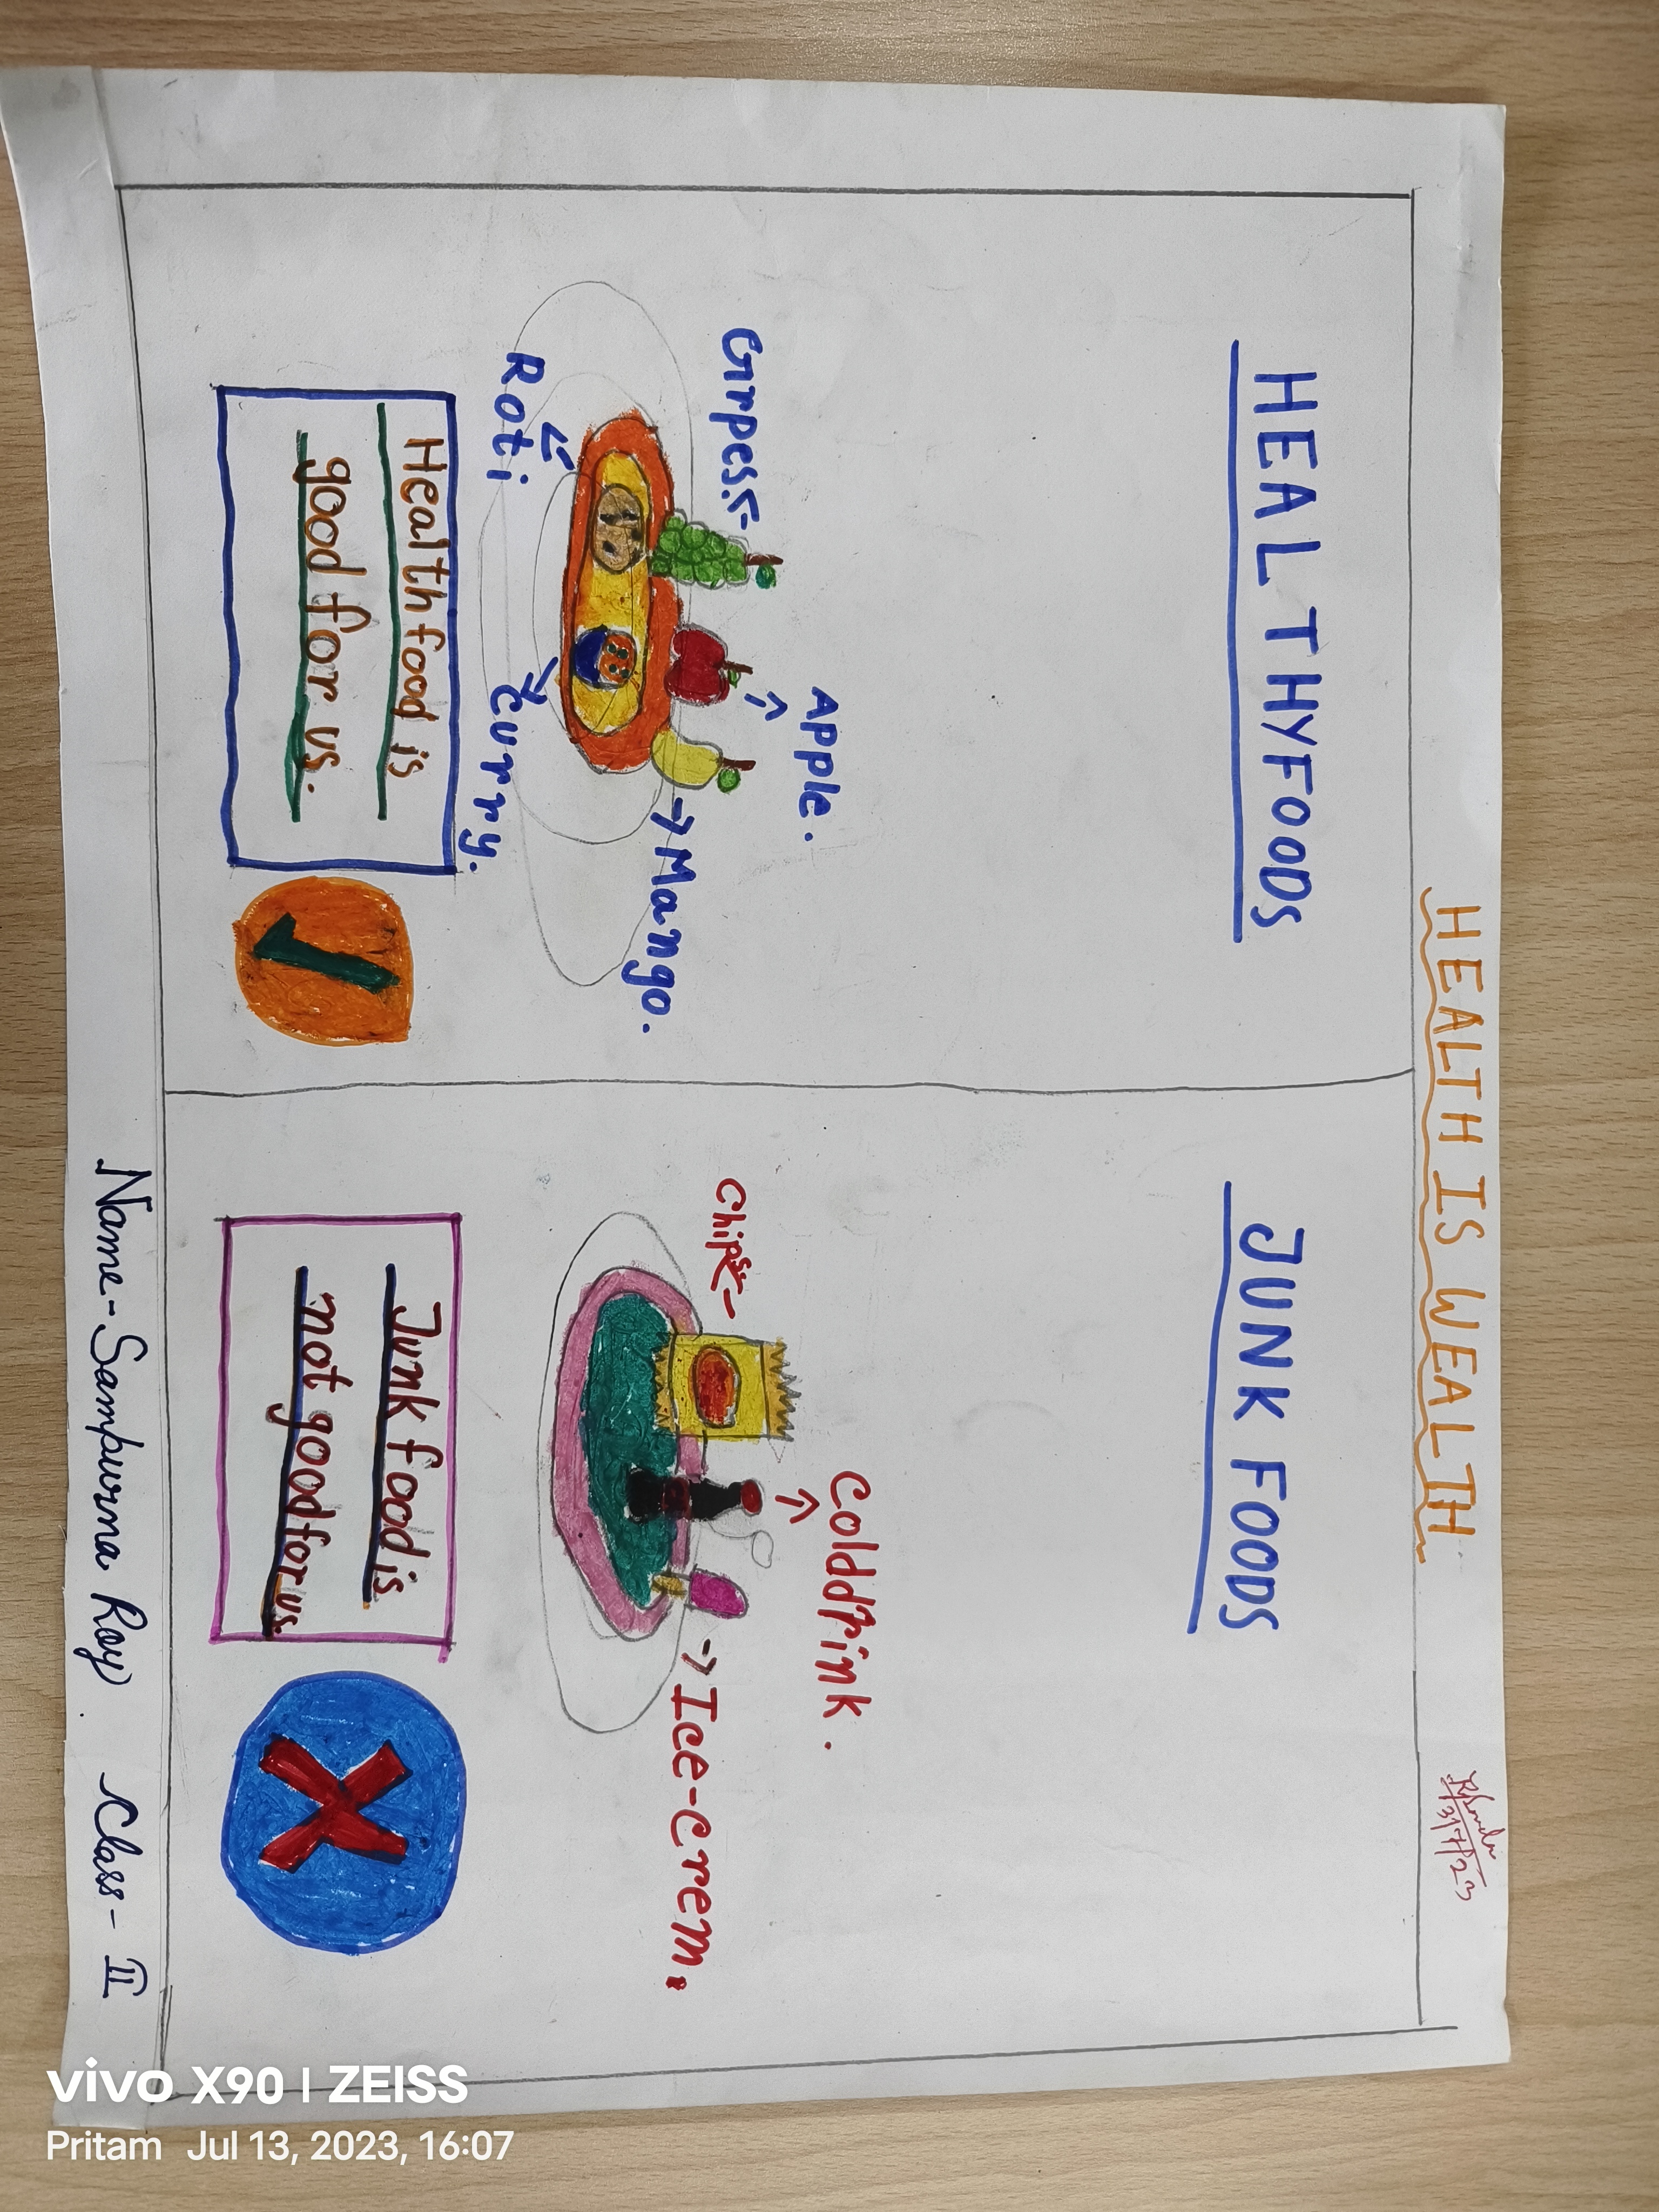 HEALTH IS WEALTH
31/7/23
HEALTHYFOODS
Apple.
Grpes
Mango.
Roti
Curry.
Health food is
good for us.
JUNK FOODS
Colddrink.
Chips
Ice-crem.
Junk food is
not good for us.
Name-Sampurna Roy. Class-II
vivo X90 | ZEISS
Pritam Jul 13, 2023, 16:07